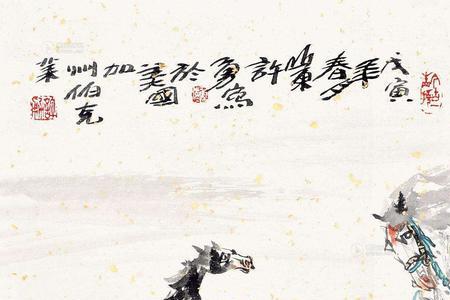 戊寅
年
春月
許
勇寫
於
美國
加
州伯克
萊